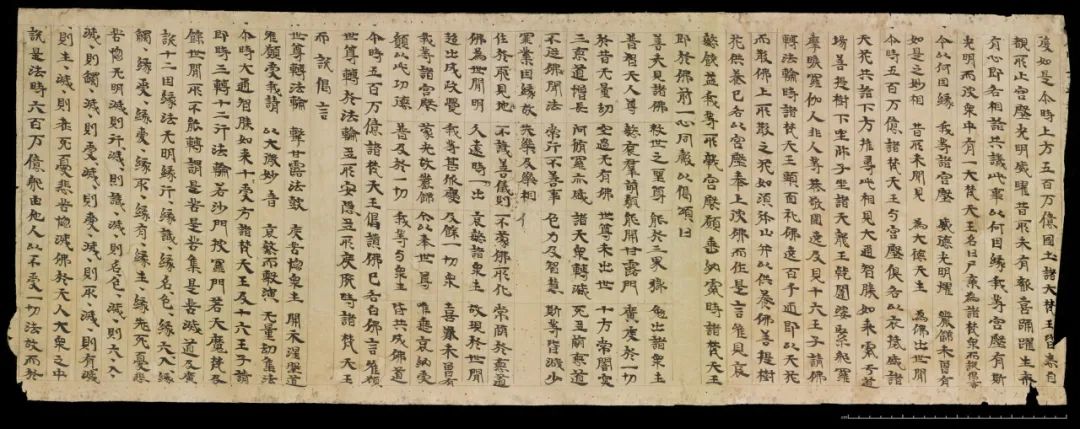 復如是尒時上方五百万億國土諸大梵王皆悉自
覩所止宮殿光明威曜昔所未有歡喜踊躍生希
有心即各相詣共議此事以何因緣我等宮殿有斯
光明而彼衆中有一大梵天王名曰尸棄為諸梵衆而說偈言
今以何因緣 我等諸宮殿 威德光明曜 嚴飾未曾有
如是之妙相 昔所未聞見 為大德天生 為佛出世間
尒時五百万億諸梵天王与宮殿俱各以衣裓盛諸
天花共詣下方推尋此相見大通智勝如來處于道
場菩提樹下坐師子坐諸天龍王乹闥婆緊那羅
摩睺羅伽人非人等恭敬圍遶及見十六王子請佛
轉法輪時諸梵天王頭面礼佛遶百千帀即以天花
而散佛上所散之花如須弥山并以供養佛菩提樹
花供養已各以宮殿奉上彼佛而作是言唯見哀
愍饒益我等所獻宮殿願垂納處時諸梵天王
即於佛前一心同聲以偈頌曰
善哉見諸佛 救世之聖尊 能於三界獄 勉出諸衆生
普智天人尊 愍哀羣萌類 能開甘露門 廣度於一切
於昔无量劫 空過无有佛 世尊未出世 十方常闇冥
三惡道增長 阿脩羅亦盛 諸天衆轉減 死多墮惡道
不從佛聞法 常行不善事 色力及智慧 斯等皆減少
罪業因緣故 失樂及樂想
住於邪見法 不識善儀則 不蒙佛所化 常墮於惡道
佛為世間眼 久遠時乃出 哀愍諸衆生 故現於世間
超出成政覺 我等甚欣慶 及餘一切衆 喜歎未曾有
我等諸宮殿 蒙光故嚴飾 今以奉世尊 唯垂哀納受
願以此功德 普及於一切 我等与衆生 皆共成佛道
尒時五百万億諸梵天王偈讚佛已各白佛言唯願
世尊轉於法輪多所安隱多所度脫時諸梵天王
而說偈言
世尊轉法輪 擊甘露法鼓 度苦惱衆生 開示涅槃道
唯願受我請 以大微妙音 哀愍而敷演 无量劫集法
尒時大通智勝如來受十方諸梵天王及十六王子請
即時三轉十二行法輪若沙門婆羅門若天魔梵及
餘世間所不能轉謂是苦是苦集是苦滅道及廣
說十二因緣法无明緣行緣識緣名色緣六入緣
觸緣受緣愛緣取緣有緣生緣老死憂悲
苦惱无明滅則行滅則識滅則名色滅則六入
滅則觸滅則受滅則愛滅則取滅則有滅
則生滅則老死憂悲苦惱滅佛於天人大衆之中
說是法時六百万億那由他人以不受一切法故而於